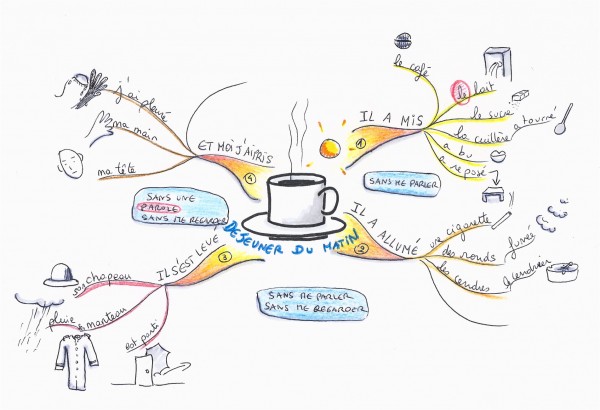 DEJEUNER DU MATIN
1
IL A MIS
le café
le lait
le sucre
la cuillère a tourné
a bu
a reposé
SANS ME PARLER
2
IL A ALLUMÉ
une cigarette
des ronds fumée
les cendres cendrier
SANS ME PARLER
SANS ME REGARDER
3
IL S'EST LEVÉ
son chapeau
pluie manteau
est parti
SANS UNE
PAROLE
SANS ME REGARDER
4
ET MOI J'AI PRIS
ma tête
ma main
j'ai pleuré